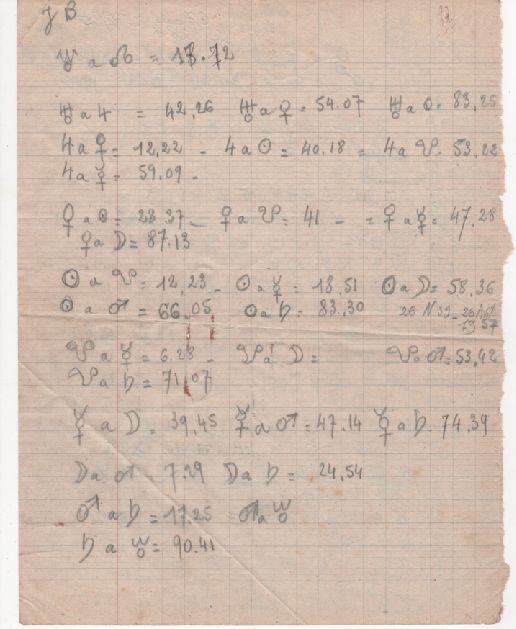 J B
♅ a ☊ = 17.72
♅ a ♃ = 42,26 ♅ a ♀ = 54.07 ♅ a ☉ = 83,25
♃ a ♀ = 12,22 - ♃ a ☉ = 40.18 = ♃ a ♈ 53,22
♃ a ☿ = 59.09 -
♀ a ☉ = 28 37 - ♀ a ♈ = 41 - = ♀ a ☿ = 47,28
♀ a ☽ = 87.13
☉ a ♈ = 12,23 - ☉ a ☿ = 18,51 ☉ a ☽ = 58,36
☉ a ♂ = 66.05 ☉ a ♄ = 83,30
♈ a ☿ = 6.28 - ♈ a ☽ = ♈ a ♂ = 53,42
♈ a ♄ = 71,07
☿ a ☽ = 39,45 ☿ a ♂ = 47.14 ☿ a ♄ 74.39
☽ a ♂ 7.29 ☽ a ♄ = 24,54
♂ a ♄ = 17.25 ♂ a ♅
♄ a ♅ = 90.41